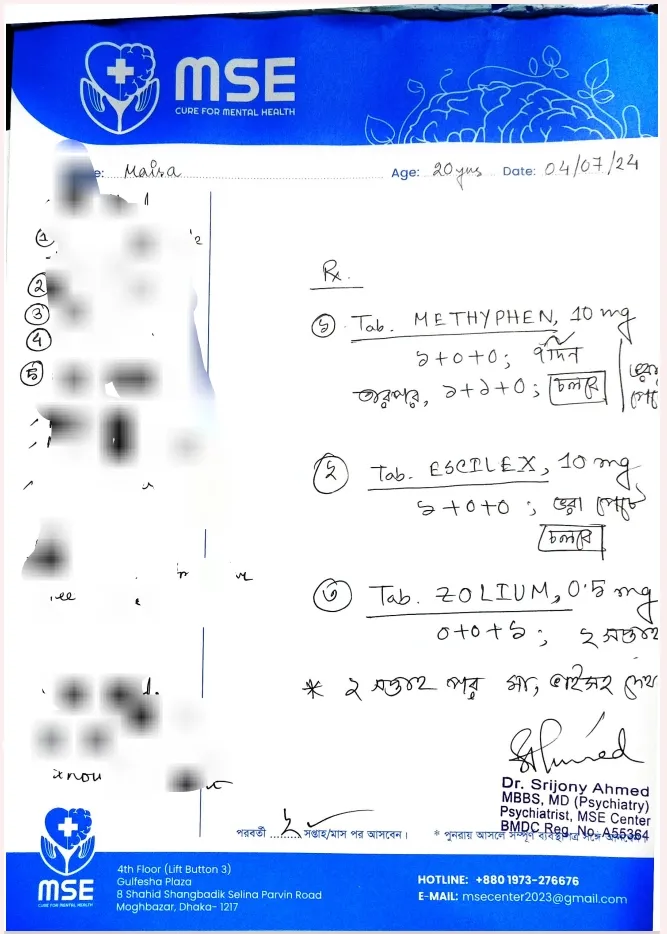 MSE
CURE FOR MENTAL HEALTH
Maisa
Age: 20 yrs Date: 04/07/24
①
②
③
④
⑤
Rx.
১ Tab. METHYPHEN, 10 mg
১+০+০; ৭ দিন
তারপর, ১+১+০; চলবে
ভরা
২ Tab. ESCILEX, 10 mg
১+০+০; ভরা পেটে
চলবে
৩ Tab. ZOLIUM, 0.5 mg
০+০+১; ২ সপ্তাহ
* ২ সপ্তাহ পর মা, ভাইসহ
Dr. Srijony Ahmed
MBBS, MD (Psychiatry)
Psychiatrist, MSE Center
BMDC Reg. No. A55364
পরবর্তী ২ সপ্তাহ/মাস পর আসবেন। * পুনরায় আসলে সম্পূর্ণ ব্যবস্থাপত্র সঙ্গে আনবেন।
MSE
CURE FOR MENTAL HEALTH
4th Floor (Lift Button 3)
Gulfesha Plaza
8 Shahid Shangbadik Selina Parvin Road
Moghbazar, Dhaka- 1217
HOTLINE: +880 1973-276676
E-MAIL: msecenter2023@gmail.com